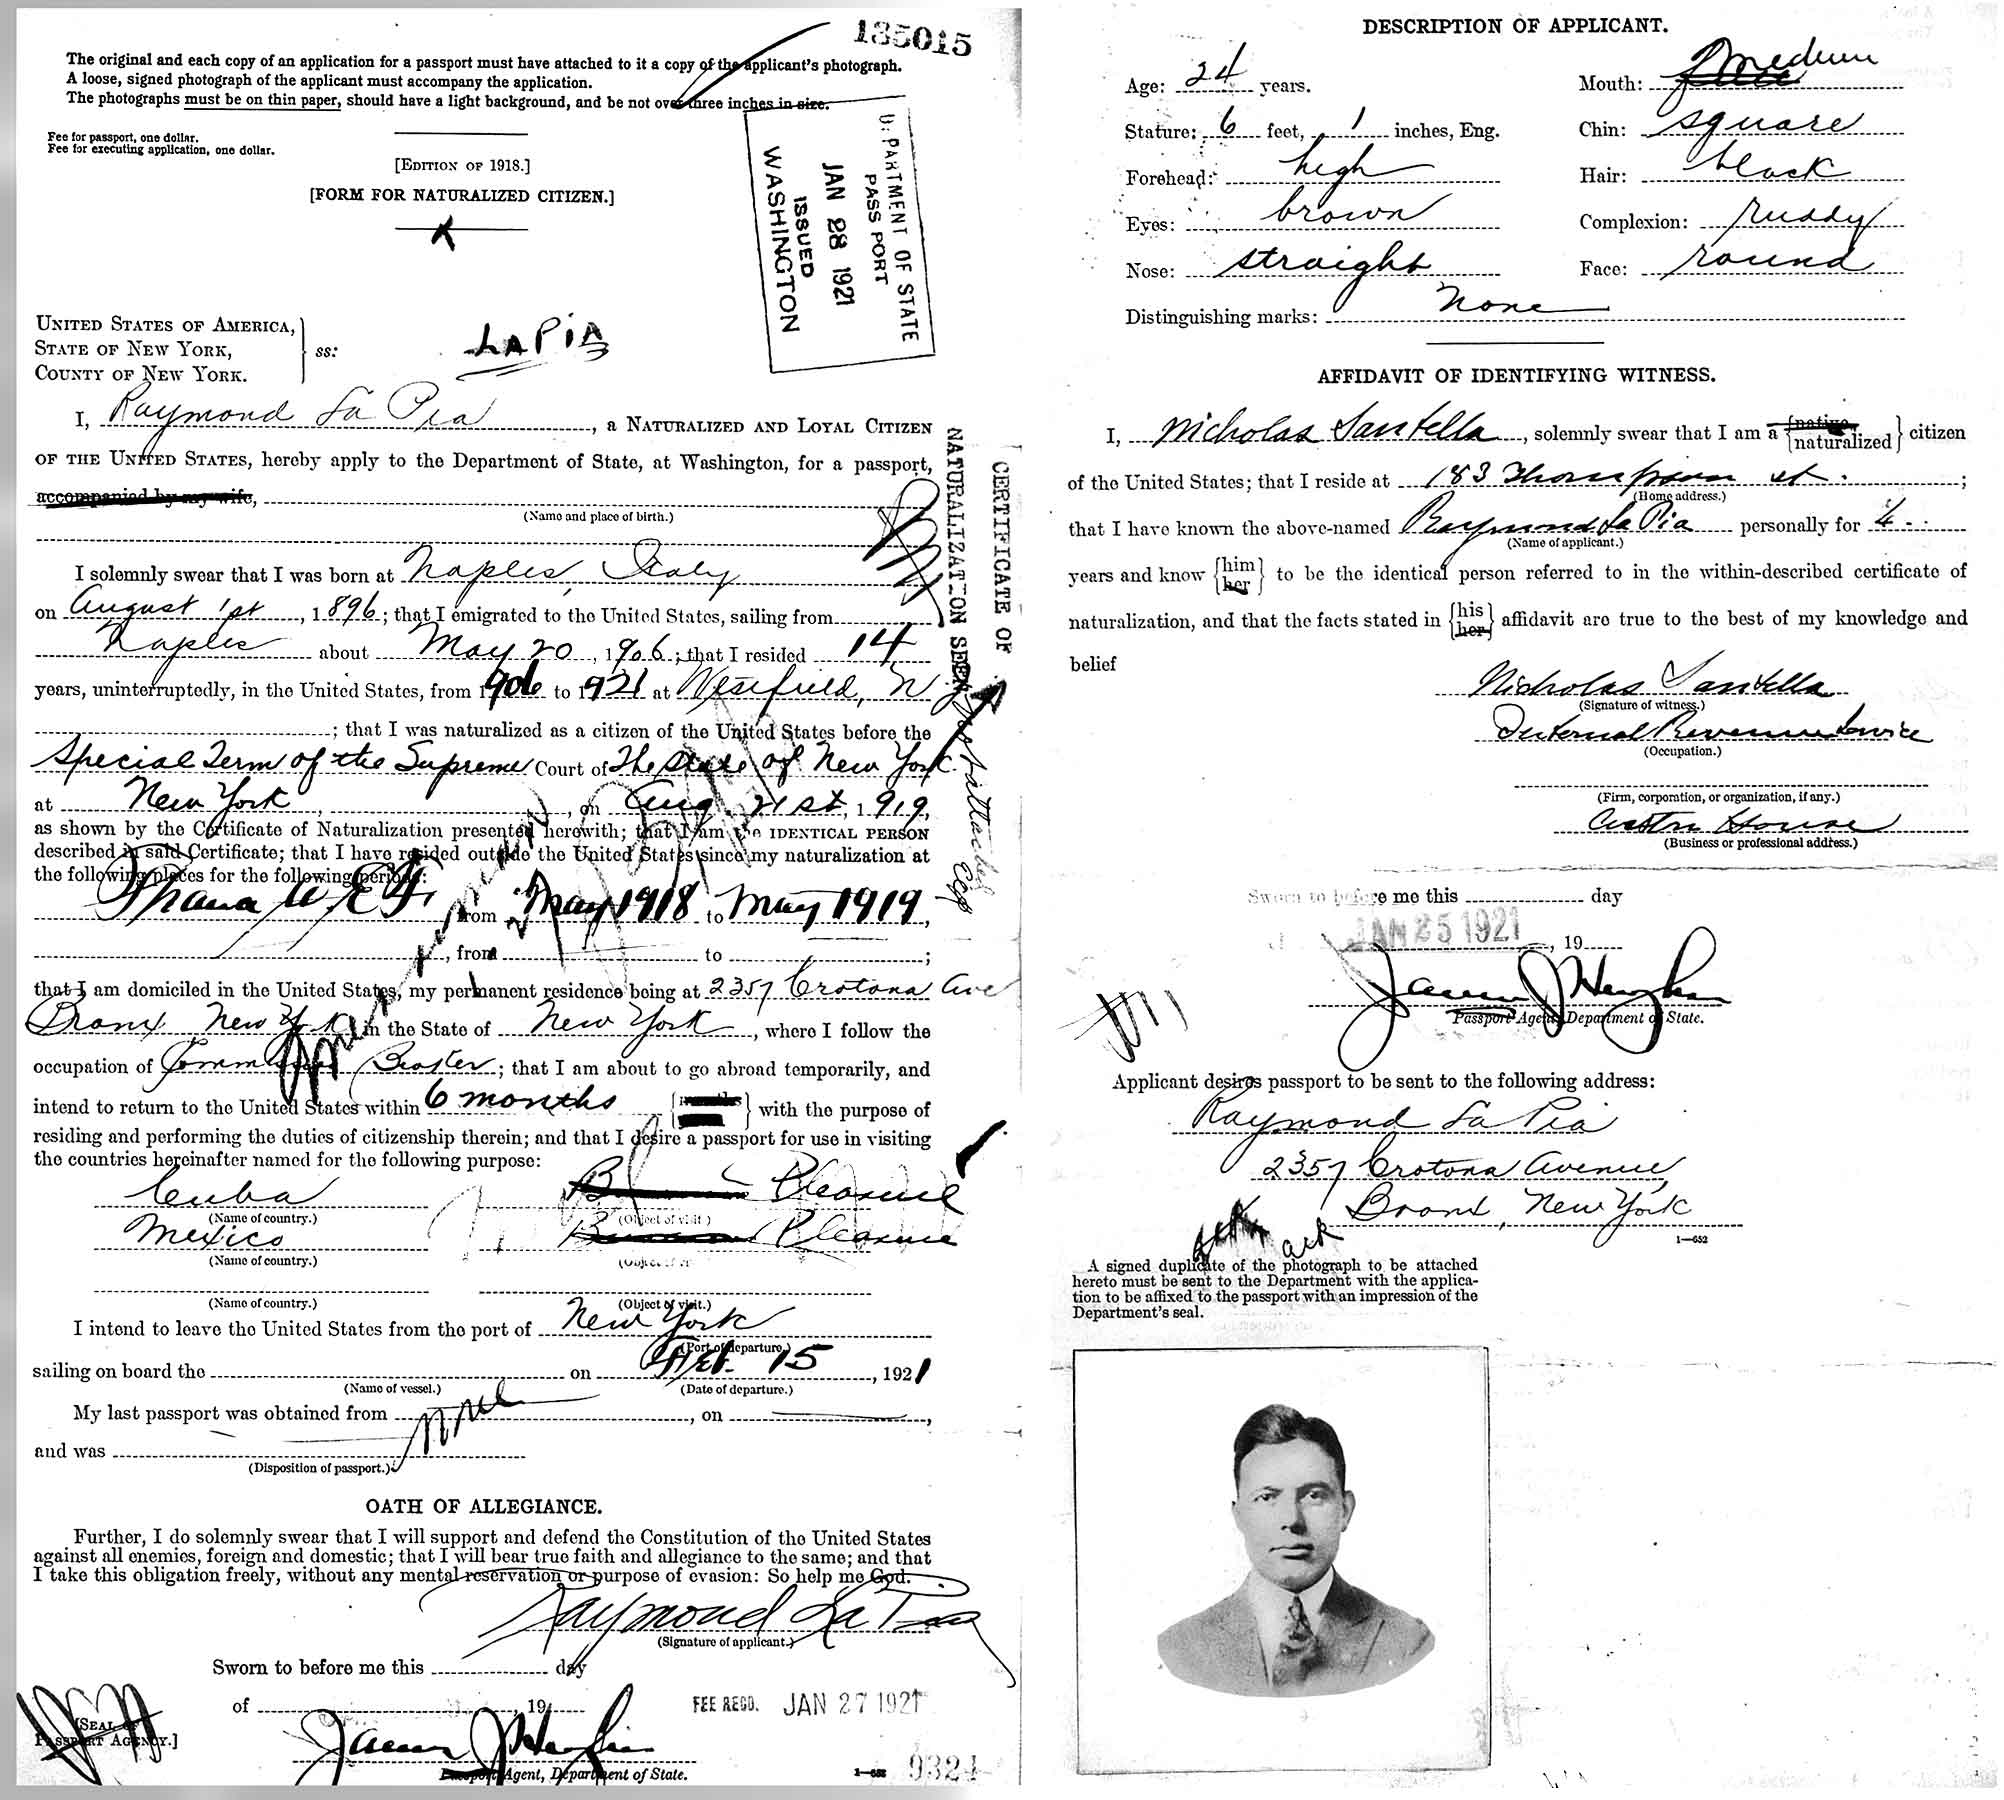 135015
The original and each copy of an application for a passport must have attached to it a copy of the applicant's photograph.
A loose, signed photograph of the applicant must accompany the application.
The photographs must be on thin paper, should have a light background, and be not over three inches in size.
Fee for passport, one dollar.
Fee for executing application, one dollar.
[EDITION OF 1918.]
[FORM FOR NATURALIZED CITIZEN.]
DEPARTMENT OF STATE
PASSPORT
JAN 28 1921
ISSUED
WASHINGTON
UNITED STATES OF AMERICA,
STATE OF NEW YORK, ss:
COUNTY OF NEW YORK.
LAPIA
I, Raymond La Pia, a NATURALIZED AND LOYAL CITIZEN
OF THE UNITED STATES, hereby apply to the Department of State, at Washington, for a passport,
accompanied by my wife,
(Name and place of birth.)
I solemnly swear that I was born at Naples, Italy
on August 1st, 1896; that I emigrated to the United States, sailing from
Naples about May 20, 1906; that I resided 14
years, uninterruptedly, in the United States, from 1906 to 1921 at Westfield, N J
; that I was naturalized as a citizen of the United States before the
Special Term of the Supreme Court of The State of New York
at New York, on Aug 21st, 1919,
as shown by the Certificate of Naturalization presented herewith; that I am the IDENTICAL PERSON
described in said Certificate; that I have resided outside the United States since my naturalization at
the following places for the following periods:
A.E.F. from May 1918 to May 1919,
, from to ;
that I am domiciled in the United States, my permanent residence being at 2357 Crotona Ave
Bronx New York in the State of New York, where I follow the
occupation of Broker; that I am about to go abroad temporarily, and
intend to return to the United States within 6 months {months} with the purpose of
residing and performing the duties of citizenship therein; and that I desire a passport for use in visiting
the countries hereinafter named for the following purpose:
Cuba Pleasure
(Name of country.) (Object of visit.)
Mexico Pleasure
(Name of country.) (Object of visit.)
(Name of country.) (Object of visit.)
I intend to leave the United States from the port of New York
(Port of departure.)
sailing on board the on Feb. 15, 1921
(Name of vessel.) (Date of departure.)
My last passport was obtained from none, on ,
and was
(Disposition of passport.)
OATH OF ALLEGIANCE.
Further, I do solemnly swear that I will support and defend the Constitution of the United States
against all enemies, foreign and domestic; that I will bear true faith and allegiance to the same; and that
I take this obligation freely, without any mental reservation or purpose of evasion: So help me God.
Raymond La Pia
(Signature of applicant.)
Sworn to before me this day
of , 19
FEE RECD. JAN 27 1921
[SEAL OF
PASSPORT AGENCY.]
Passport Agent, Department of State.
1—652 9324
CERTIFICATE OF
NATURALIZATION SEEN
DESCRIPTION OF APPLICANT.
Age: 24 years. Mouth: medium
Stature: 6 feet, 1 inches, Eng. Chin: square
Forehead: high Hair: black
Eyes: brown Complexion: ruddy
Nose: straight Face: round
Distinguishing marks: None
AFFIDAVIT OF IDENTIFYING WITNESS.
I, Nicholas Santella, solemnly swear that I am a {native naturalized} citizen
of the United States; that I reside at 183 Thompson st.;
(Home address.)
that I have known the above-named Raymond La Pia personally for 4
(Name of applicant.)
years and know {him her} to be the identical person referred to in the within-described certificate of
naturalization, and that the facts stated in {his her} affidavit are true to the best of my knowledge and
belief
Nicholas Santella
(Signature of witness.)
Internal Revenue Service
(Occupation.)
(Firm, corporation, or organization, if any.)
Custom House
(Business or professional address.)
Sworn to before me this day
JAN 25 1921, 19
Passport Agent, Department of State.
Applicant desires passport to be sent to the following address:
Raymond La Pia
2357 Crotona Avenue,
Bronx, New York
1—652
ack
A signed duplicate of the photograph to be attached
hereto must be sent to the Department with the applica-
tion to be affixed to the passport with an impression of the
Department's seal.